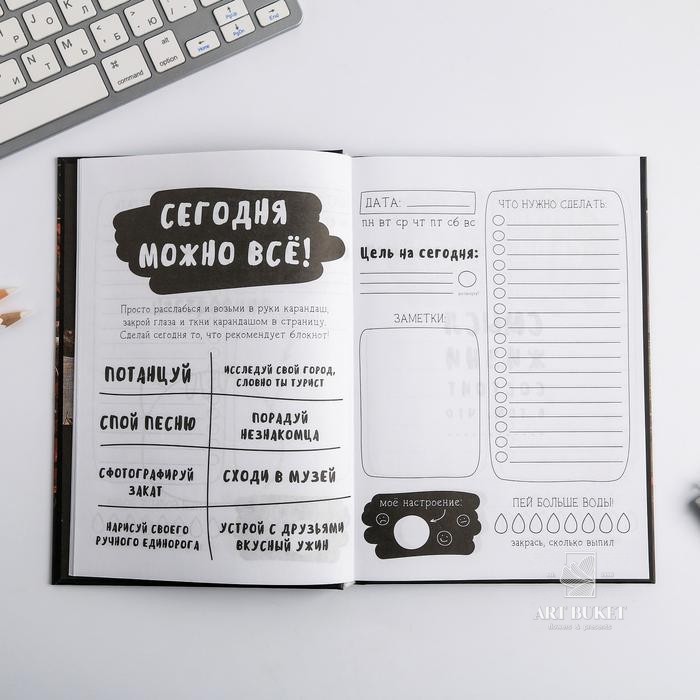 СЕГОДНЯ
МОЖНО ВСЁ!
Просто расслабься и возьми в руки карандаш,
закрой глаза и ткни карандашом в страницу.
Сделай сегодня то, что рекомендует блокнот!
ПОТАНЦУЙ
ИССЛЕДУЙ СВОЙ ГОРОД,
СЛОВНО ТЫ ТУРИСТ
СПОЙ ПЕСНЮ
ПОРАДУЙ
НЕЗНАКОМЦА
СФОТОГРАФИРУЙ
ЗАКАТ
СХОДИ В МУЗЕЙ
НАРИСУЙ СВОЕГО
РУЧНОГО ЕДИНОРОГА
УСТРОЙ С ДРУЗЬЯМИ
ВКУСНЫЙ УЖИН
ДАТА:
ПН ВТ СР ЧТ ПТ СБ ВС
Цель на сегодня:
ЗАМЕТКИ:
моё настроение:
ЧТО НУЖНО СДЕЛАТЬ:
ПЕЙ БОЛЬШЕ ВОДЫ!
закрась, сколько выпил
ART BUKET
command
option
alt
Home
End
PgUp
PgDn